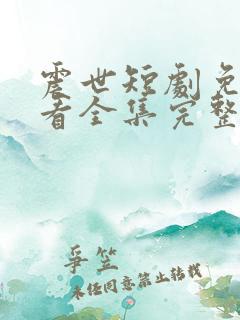 震世短劇免
看全集完整
爭笠
未经同意禁止转载